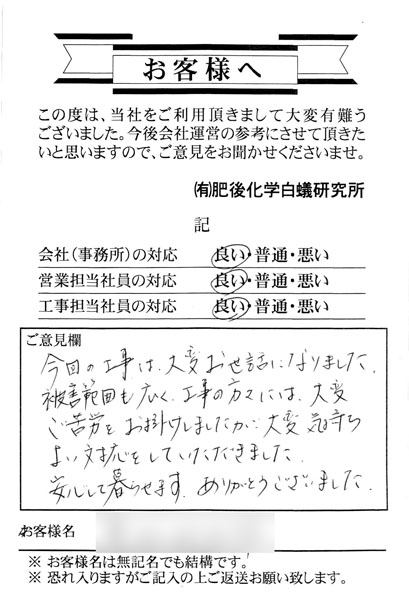 お客様へ
この度は、当社をご利用頂きまして大変有難う
ございました。今後会社運営の参考にさせて頂きた
いと思いますので、ご意見をお聞かせくださいませ。
㈲肥後化学白蟻研究所
記
会社(事務所)の対応 良い・普通・悪い
営業担当社員の対応 良い・普通・悪い
工事担当社員の対応 良い・普通・悪い
ご意見欄
今回の工事は、大変お世話になりました。
被害範囲も広く、工事の方々には、大変
ご苦労をお掛けしましたが、大変気持ち
よい対応をしていただきました。
安心して暮らせます。ありがとうございました。
お客様名
※ お客様名は無記名でも結構です。
※ 恐れ入りますがご記入の上ご返送お願い致します。